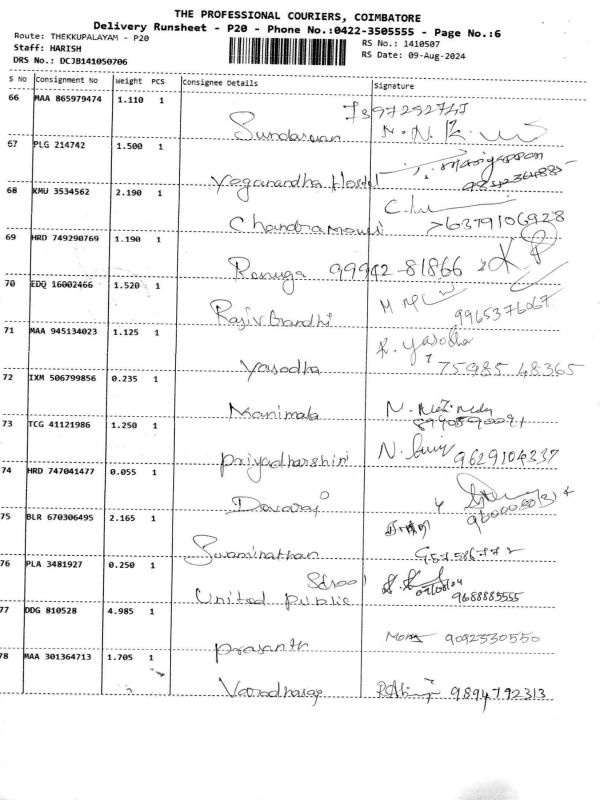 THE PROFESSIONAL COURIERS, COIMBATORE
Delivery Runsheet - P20 - Phone No.:0422-3505555 - Page No.:6
Route: THEKKUPALAYAM - P20
Staff: HARISH
DRS No.: DCJB141050706
RS No.: 1410507
RS Date: 09-Aug-2024
S NO Consignment No Weight PCS Consignee Details Signature
66 MAA 865979474 1.110 1
67 PLG 214742 1.500 1
Yoganandha Hostel
68 KMU 3534562 2.190 1
Chandramouli 6379106928
69 HRD 749290769 1.190 1
Renuga 99942-81866
70 EDQ 16002466 1.520 1
Rajiv Gandhi 9965376067
71 MAA 945134023 1.125 1 K. Yasodha
Yasodha 75985 48365
72 IXM 506799856 0.235 1
Manimala
73 TCG 41121986 1.250 1
Priyadharshini 9629104337
74 HRD 747041477 0.055 1
Devaraj
75 BLR 670306495 2.165 1
Swaminathan
76 PLA 3481927 0.250 1
School 09/08/24
United Public 9688885555
77 DDG 810528 4.985 1
Prasanth 9092330550
78 MAA 301364713 1.705 1
Varadharaj 9894792313